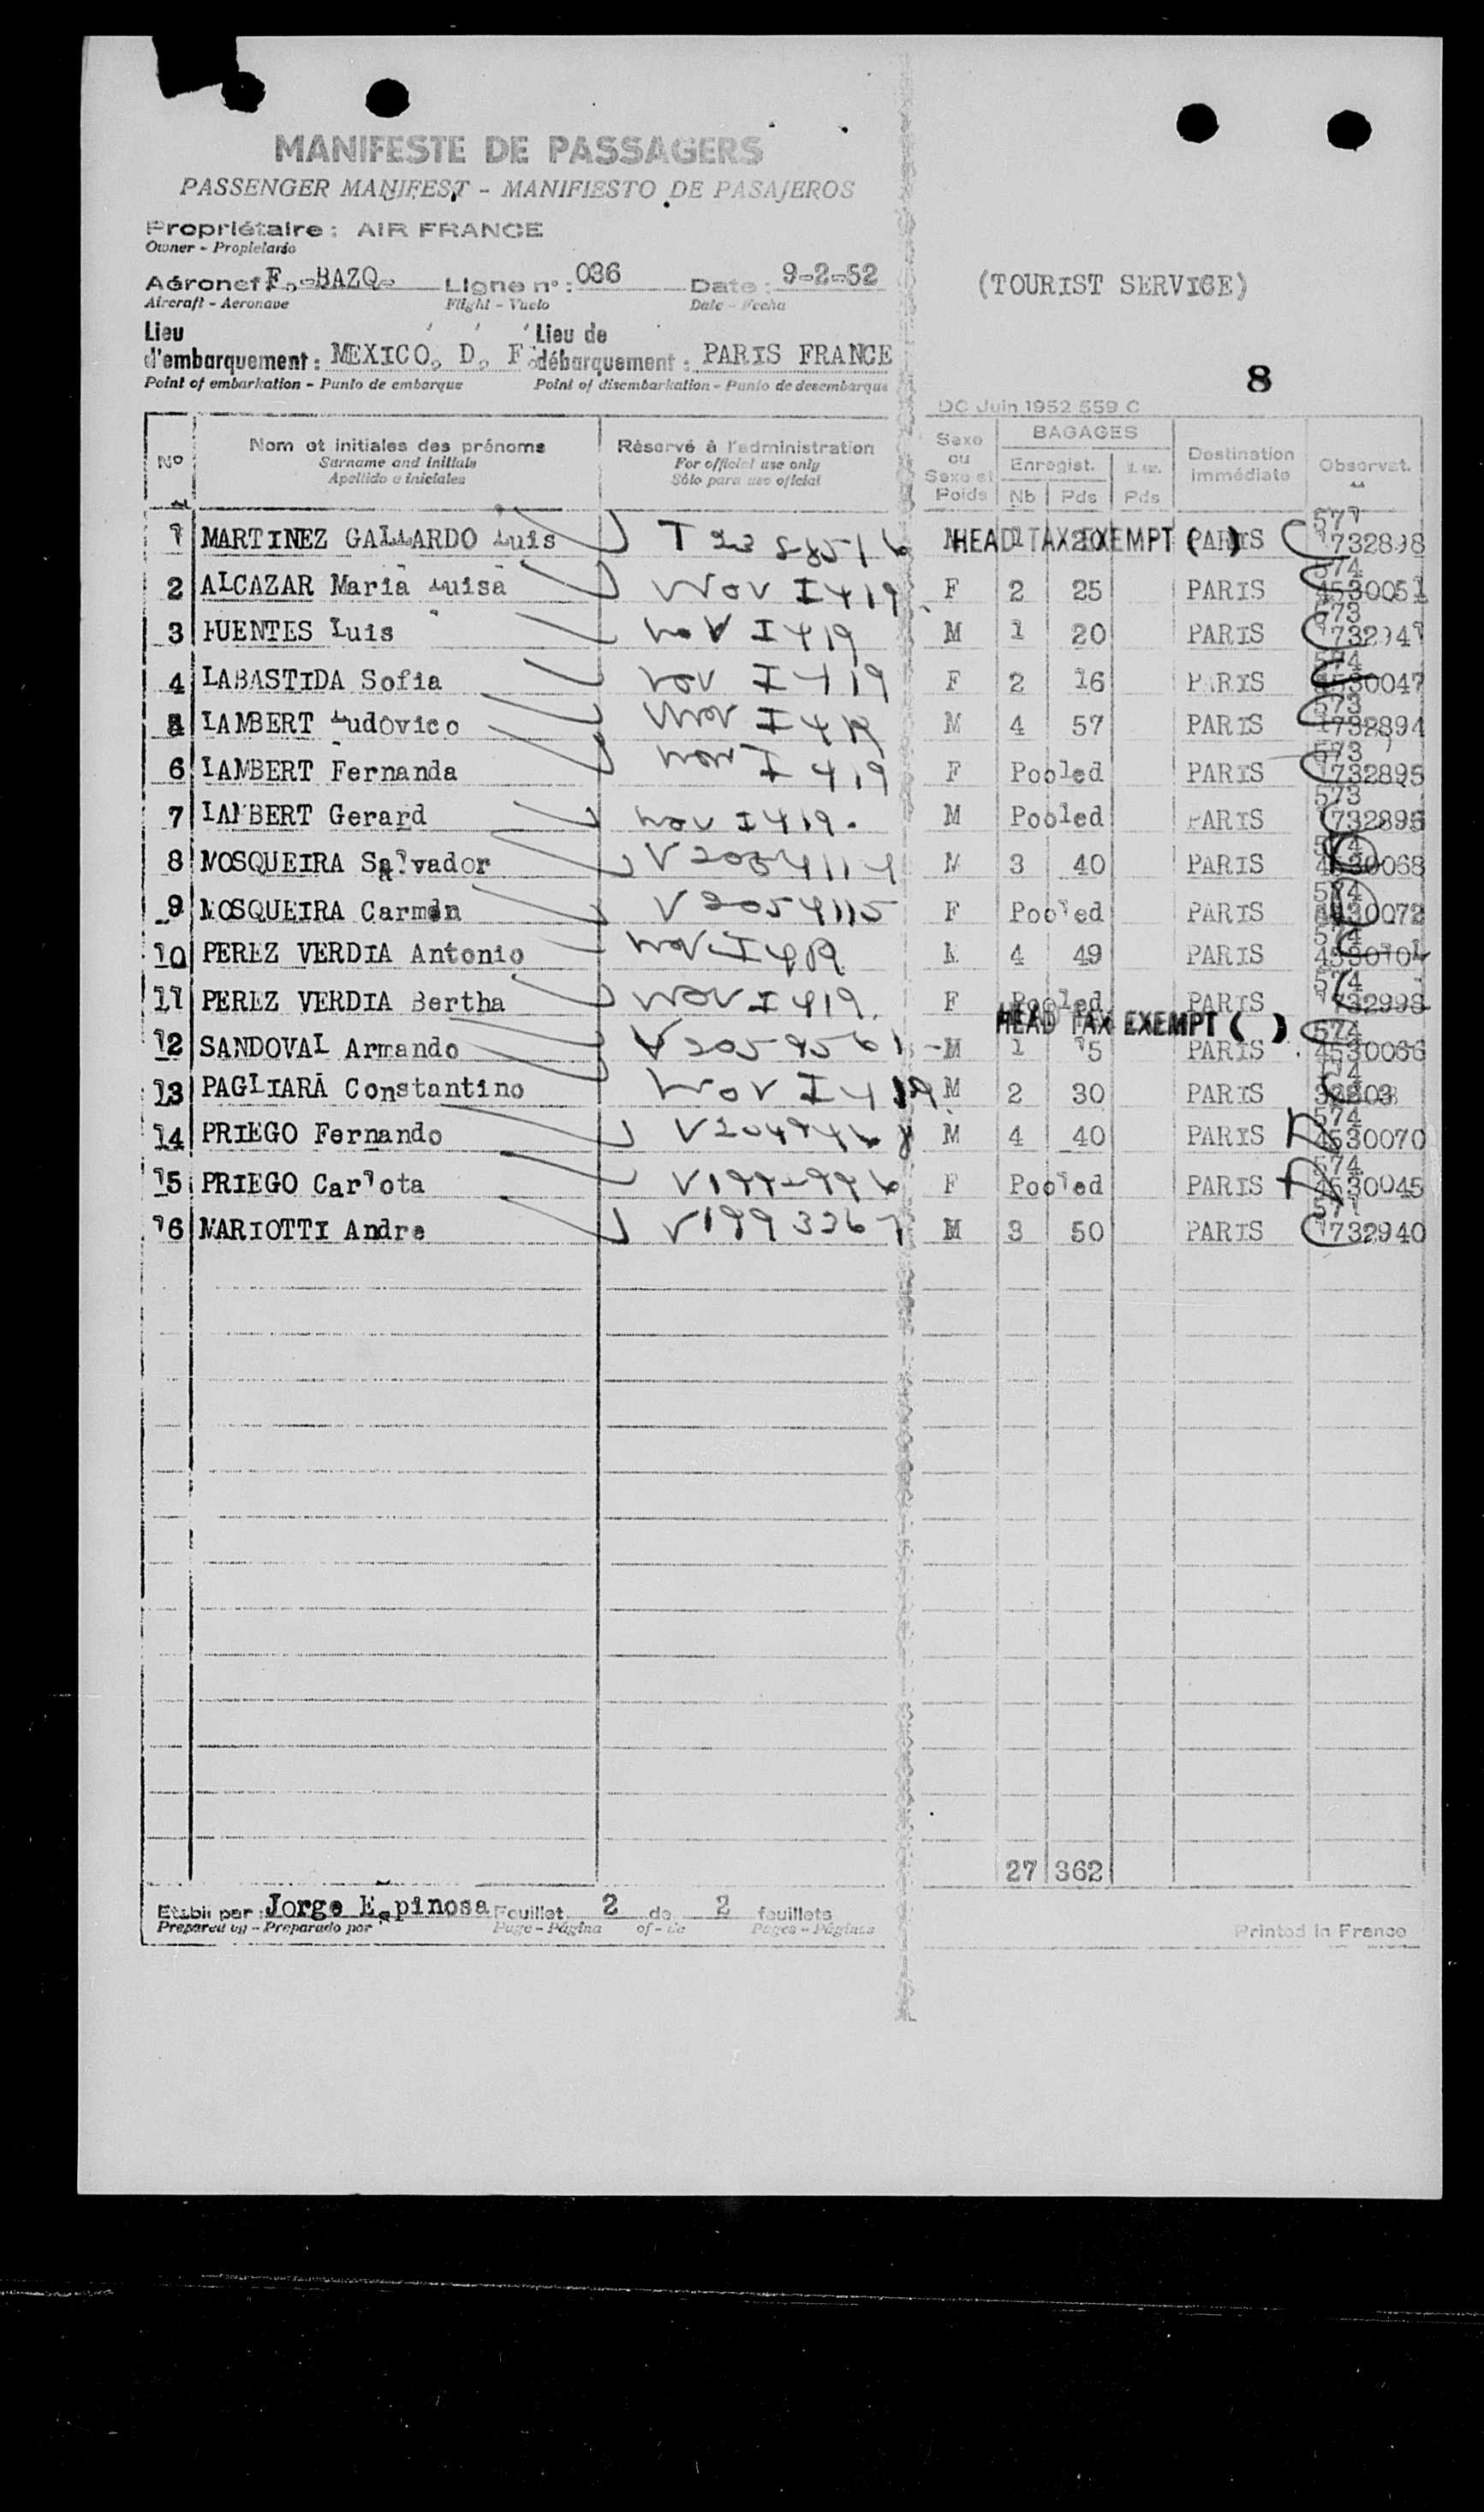 MANIFESTE DE PASSAGERS
PASSENGER MANIFEST - MANIFIESTO DE PASAJEROS
Propriétaire : AIR FRANCE
Owner - Propietario
Aéronef : F.-BAZQ. Ligne n° : 036 Date : 9-2-52
Aircraft - Aeronave Flight - Vuelo Date - Fecha
(TOURIST SERVICE)
Lieu d'embarquement : MEXICO, D. F. Lieu de débarquement : PARIS FRANCE
Point of embarkation - Punto de embarque Point of disembarkation - Punto de desembarque
8
DC Juin 1952 559 C
N° Nom et initiales des prénoms Réservé à l'administration Sexe ou Sexe et Poids BAGAGES Destination immédiate Observat.
Surname and initials For official use only Enregist.
Apellido e iniciales Sólo para uso oficial Nb Pds Pds
1 MARTINEZ GALLARDO Luis M HEAD TAX EXEMPT ( ) 1 PARIS 571 1732898
2 ALCAZAR Maria Luisa Nov I 419 F 2 25 PARIS 574 4530051
3 FUENTES Luis Nov I 419 M 1 20 PARIS 573 1732941
4 LABASTIDA Sofia Nov I 419 F 2 16 PARIS 574 4530047
5 LAMBERT Ludovico Nov I 419 M 4 57 PARIS 573 1732894
6 LAMBERT Fernanda Nov I 419 F Pooled PARIS 573 1732895
7 LAMBERT Gerard Nov I 419. M Pooled PARIS 573 1732895
8 MOSQUEIRA Salvador V 2054114 M 3 40 PARIS 574 4530068
9 MOSQUEIRA Carmen V 2054115 F Pooled PARIS 574 4530072
10 PEREZ VERDIA Antonio Nov I 419 M 4 49 PARIS 574 4530104
11 PEREZ VERDIA Bertha Nov I 419. F Pooled PARIS 574 1732998
HEAD TAX EXEMPT ( )
12 SANDOVAL Armando V 2059561 M 1 15 PARIS 574 4530066
13 PAGLIARA Constantino Nov I 419 M 2 30 PARIS 574
14 PRIEGO Fernando M 4 40 PARIS 574 4530070
15 PRIEGO Carlota F Pooled PARIS 574 4530045
16 MARIOTTI Andre V1993367 M 3 50 PARIS 571 1732940
27 362
Etabli par : Jorge Espinosa Feuillet 2 de 2 feuillets
Prepared by - Preparado por Page - Página of - de Pages - Páginas
Printed in France